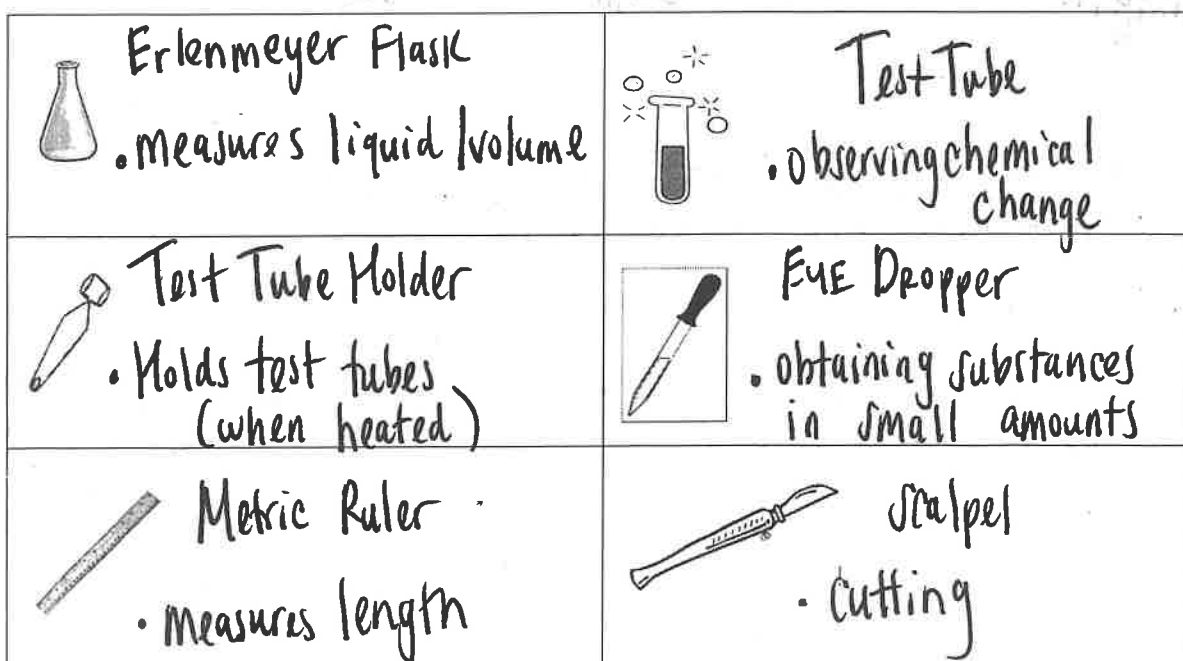 Erlenmeyer Flask
• measures liquid/volume
Test Tube
• observing chemical
change
Test Tube Holder
• Holds test tubes
(when heated)
EYE DRopper
• obtaining substances
in small amounts
Metric Ruler
• measures length
scalpel
• cutting